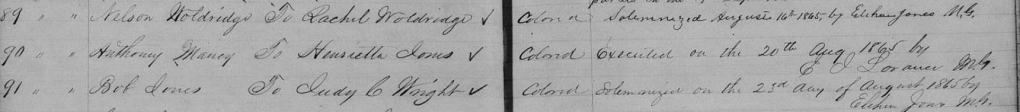 89 " " Nelson Woldridge To Rachel Woldridge ✓ Colored Solemnized August 16th 1865, by Elihen Jones M.G.
90 " " Anthoney Maney To Henrietta Jones ✓ Colored Executed on the 20th Aug 1865 by
E J Lorance M.G.
91 " " Bob Jones To Judy C Wright ✓ Colored Solemnized on the 23d day of August 1865 by
Elihen Jones M.G.